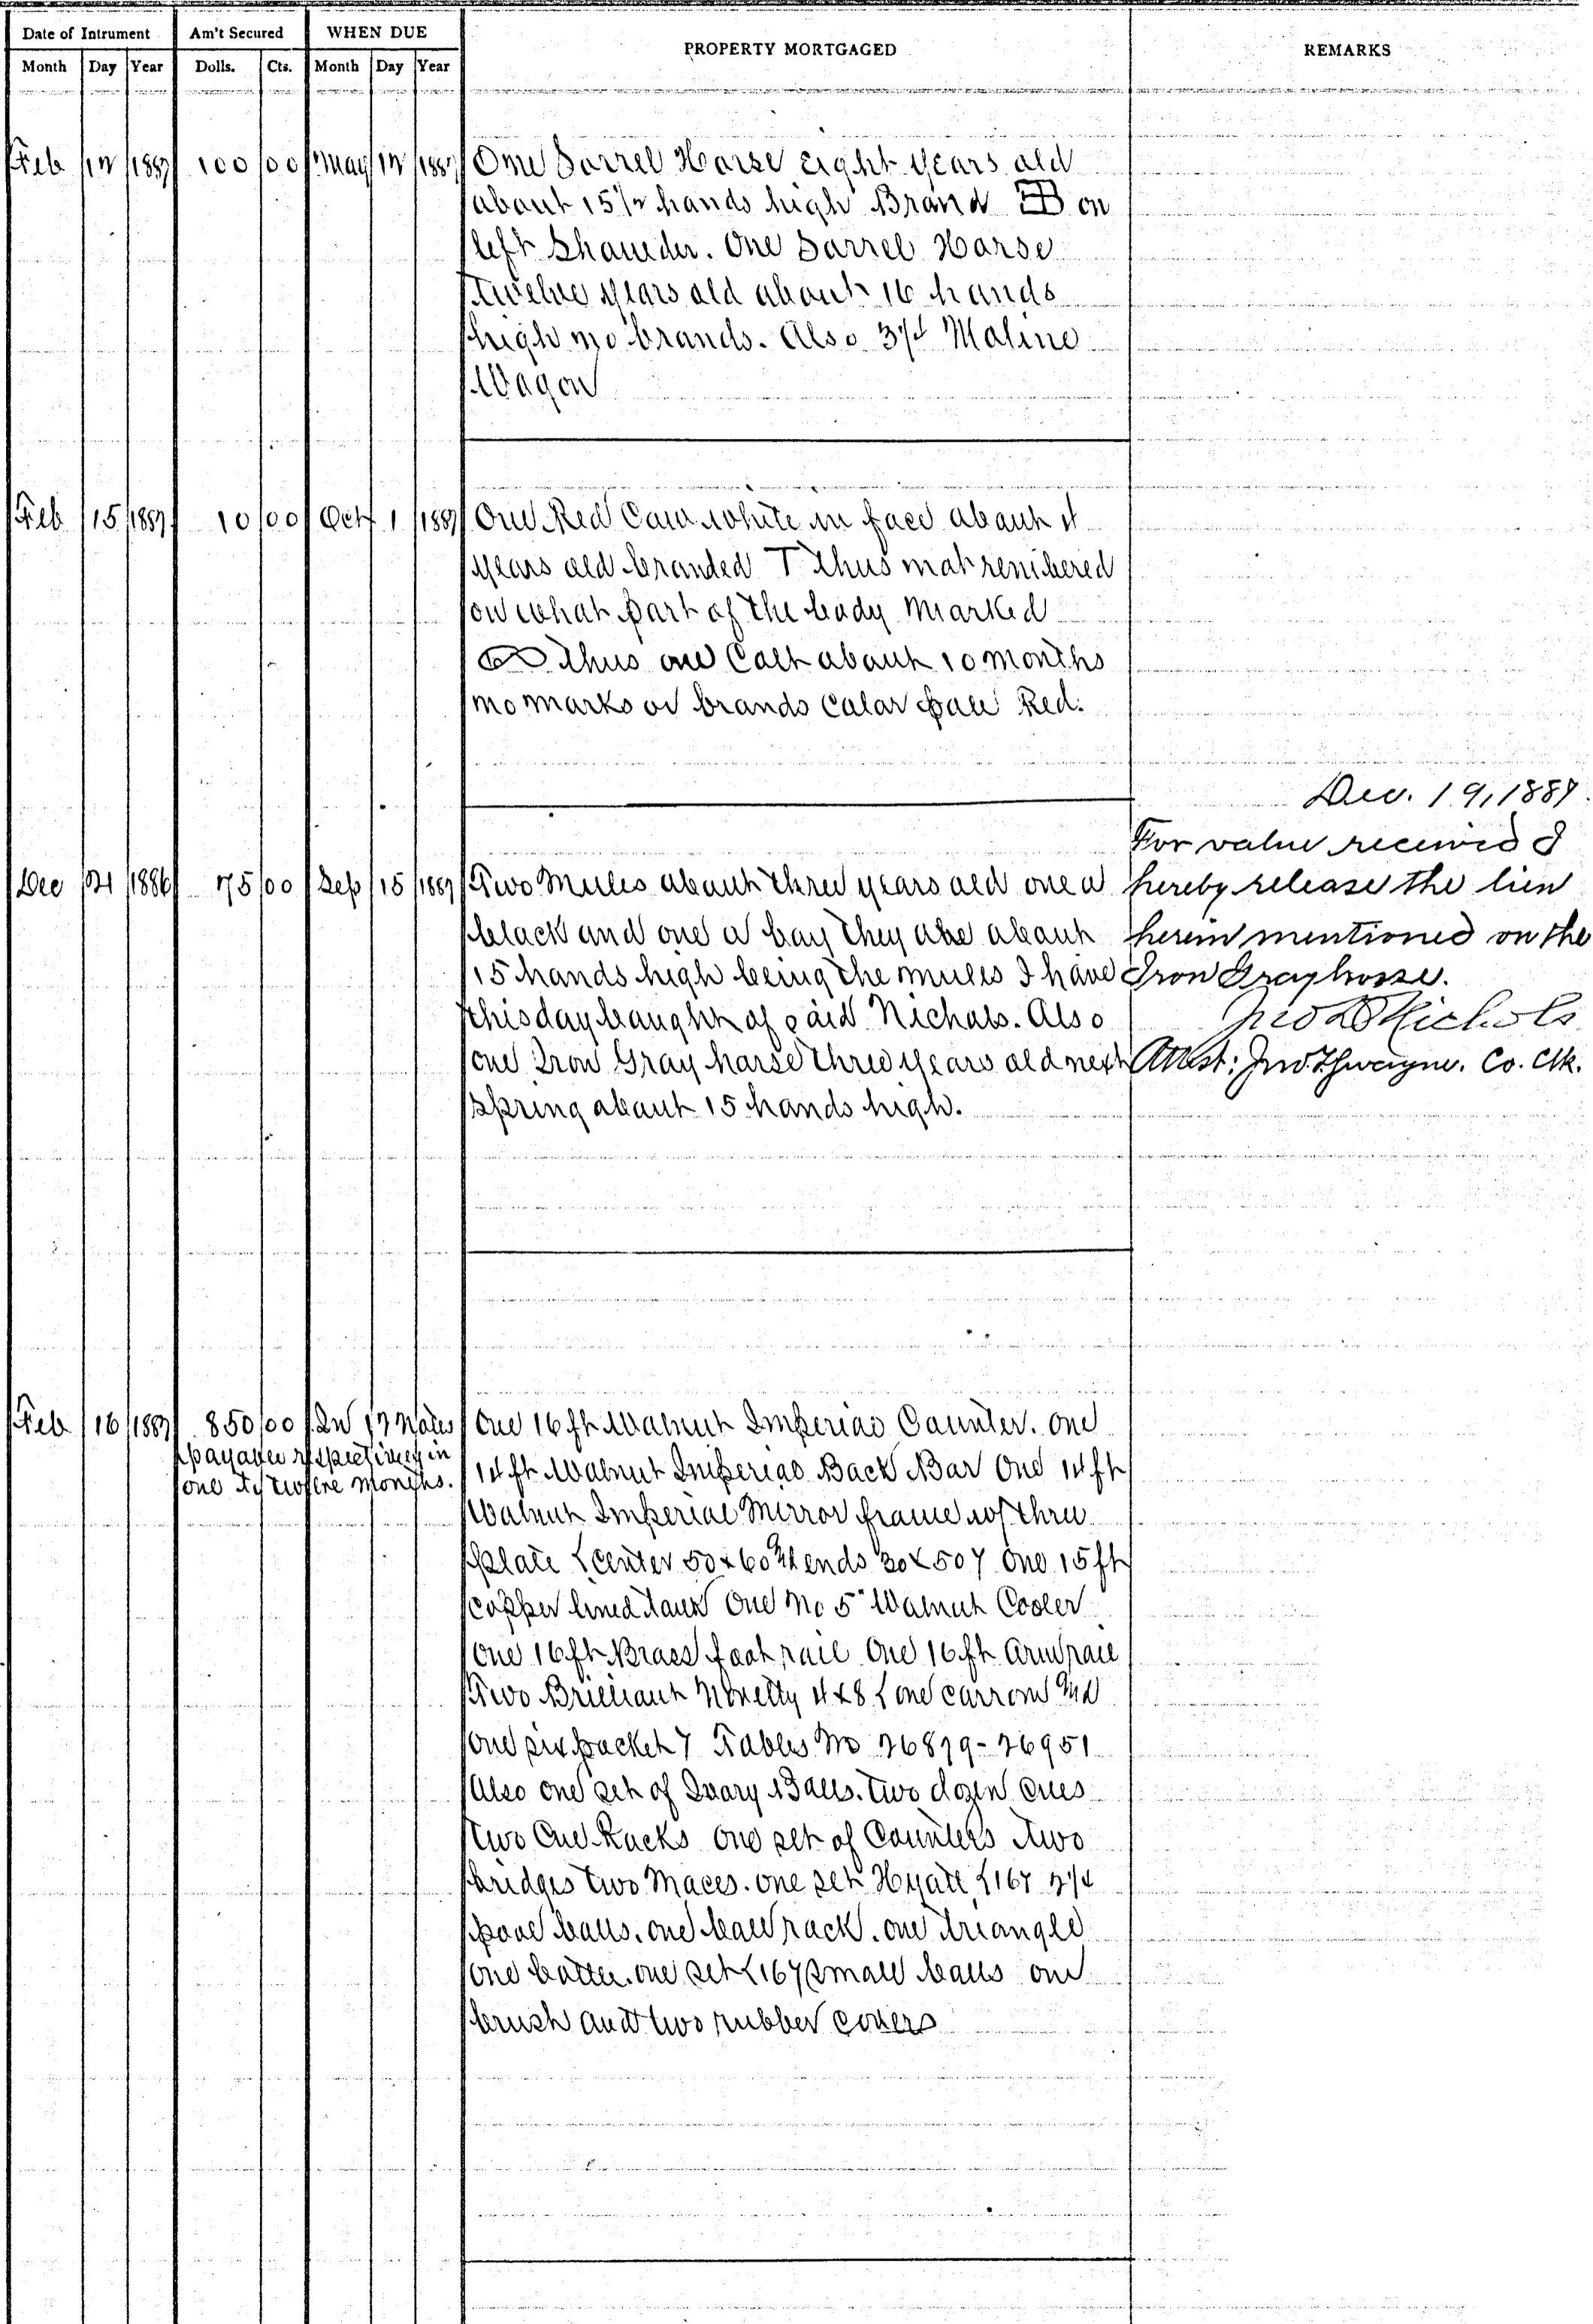 Date of Intrument Am't Secured WHEN DUE PROPERTY MORTGAGED REMARKS
Month Day Year Dolls. Cts. Month Day Year
Feb 14 1887 100 00 May 14 1887 One Sorrel Horse eight years old
about 15 1/2 hands high Brand on
left Shoulder. One Sorrel Horse
twelve years old about 16 hands
high no brands. Also 3 1/4 Moline
Wagon
Feb 15 1887 10 00 Oct 1 1887 One Red Cow white in face about 4
years old branded T thus not remembered
on what part of the body marked
thus one Calf about 10 months
no marks or brands Color pale Red.
Dec 21 1886 75 00 Sep 15 1887 Two Mules about three years old one a
black and one a bay they are about
15 hands high being the mules I have
this day bought of said Nichols. Also
one Iron Gray horse three years old next
spring about 15 hands high.
Dec. 19, 1887
For value received I
hereby release the lien
herein mentioned on the
Iron Gray horse.
Nichols
Attest: Jno. Co. Clk.
Feb 16 1887 850 00 In 12 Notes
payable respectively in
one to twelve months.
One 16 ft Walnut Imperial Counter. one
14 ft Walnut Imperial Back Bar One 14 ft
Walnut Imperial Mirror frame of three
plate (center 50 x 60 ends 30 x 50) One 15 ft
copper lined tank One No 5 Walnut Cooler
one 16 ft Brass foot rail One 16 ft Arm rail
Two Brilliant Novelty 4 x 8 (one carrom and
one six pocket) Tables No 26879 - 26951
Also one set of Ivory Balls. two dozen cues
two Cue Racks one set of Counters two
bridges two Maces. one set Hyatt (16) 2 1/4
pool balls. one ball rack. one triangle
one bottle. one set (16) small balls one
brush and two rubber covers